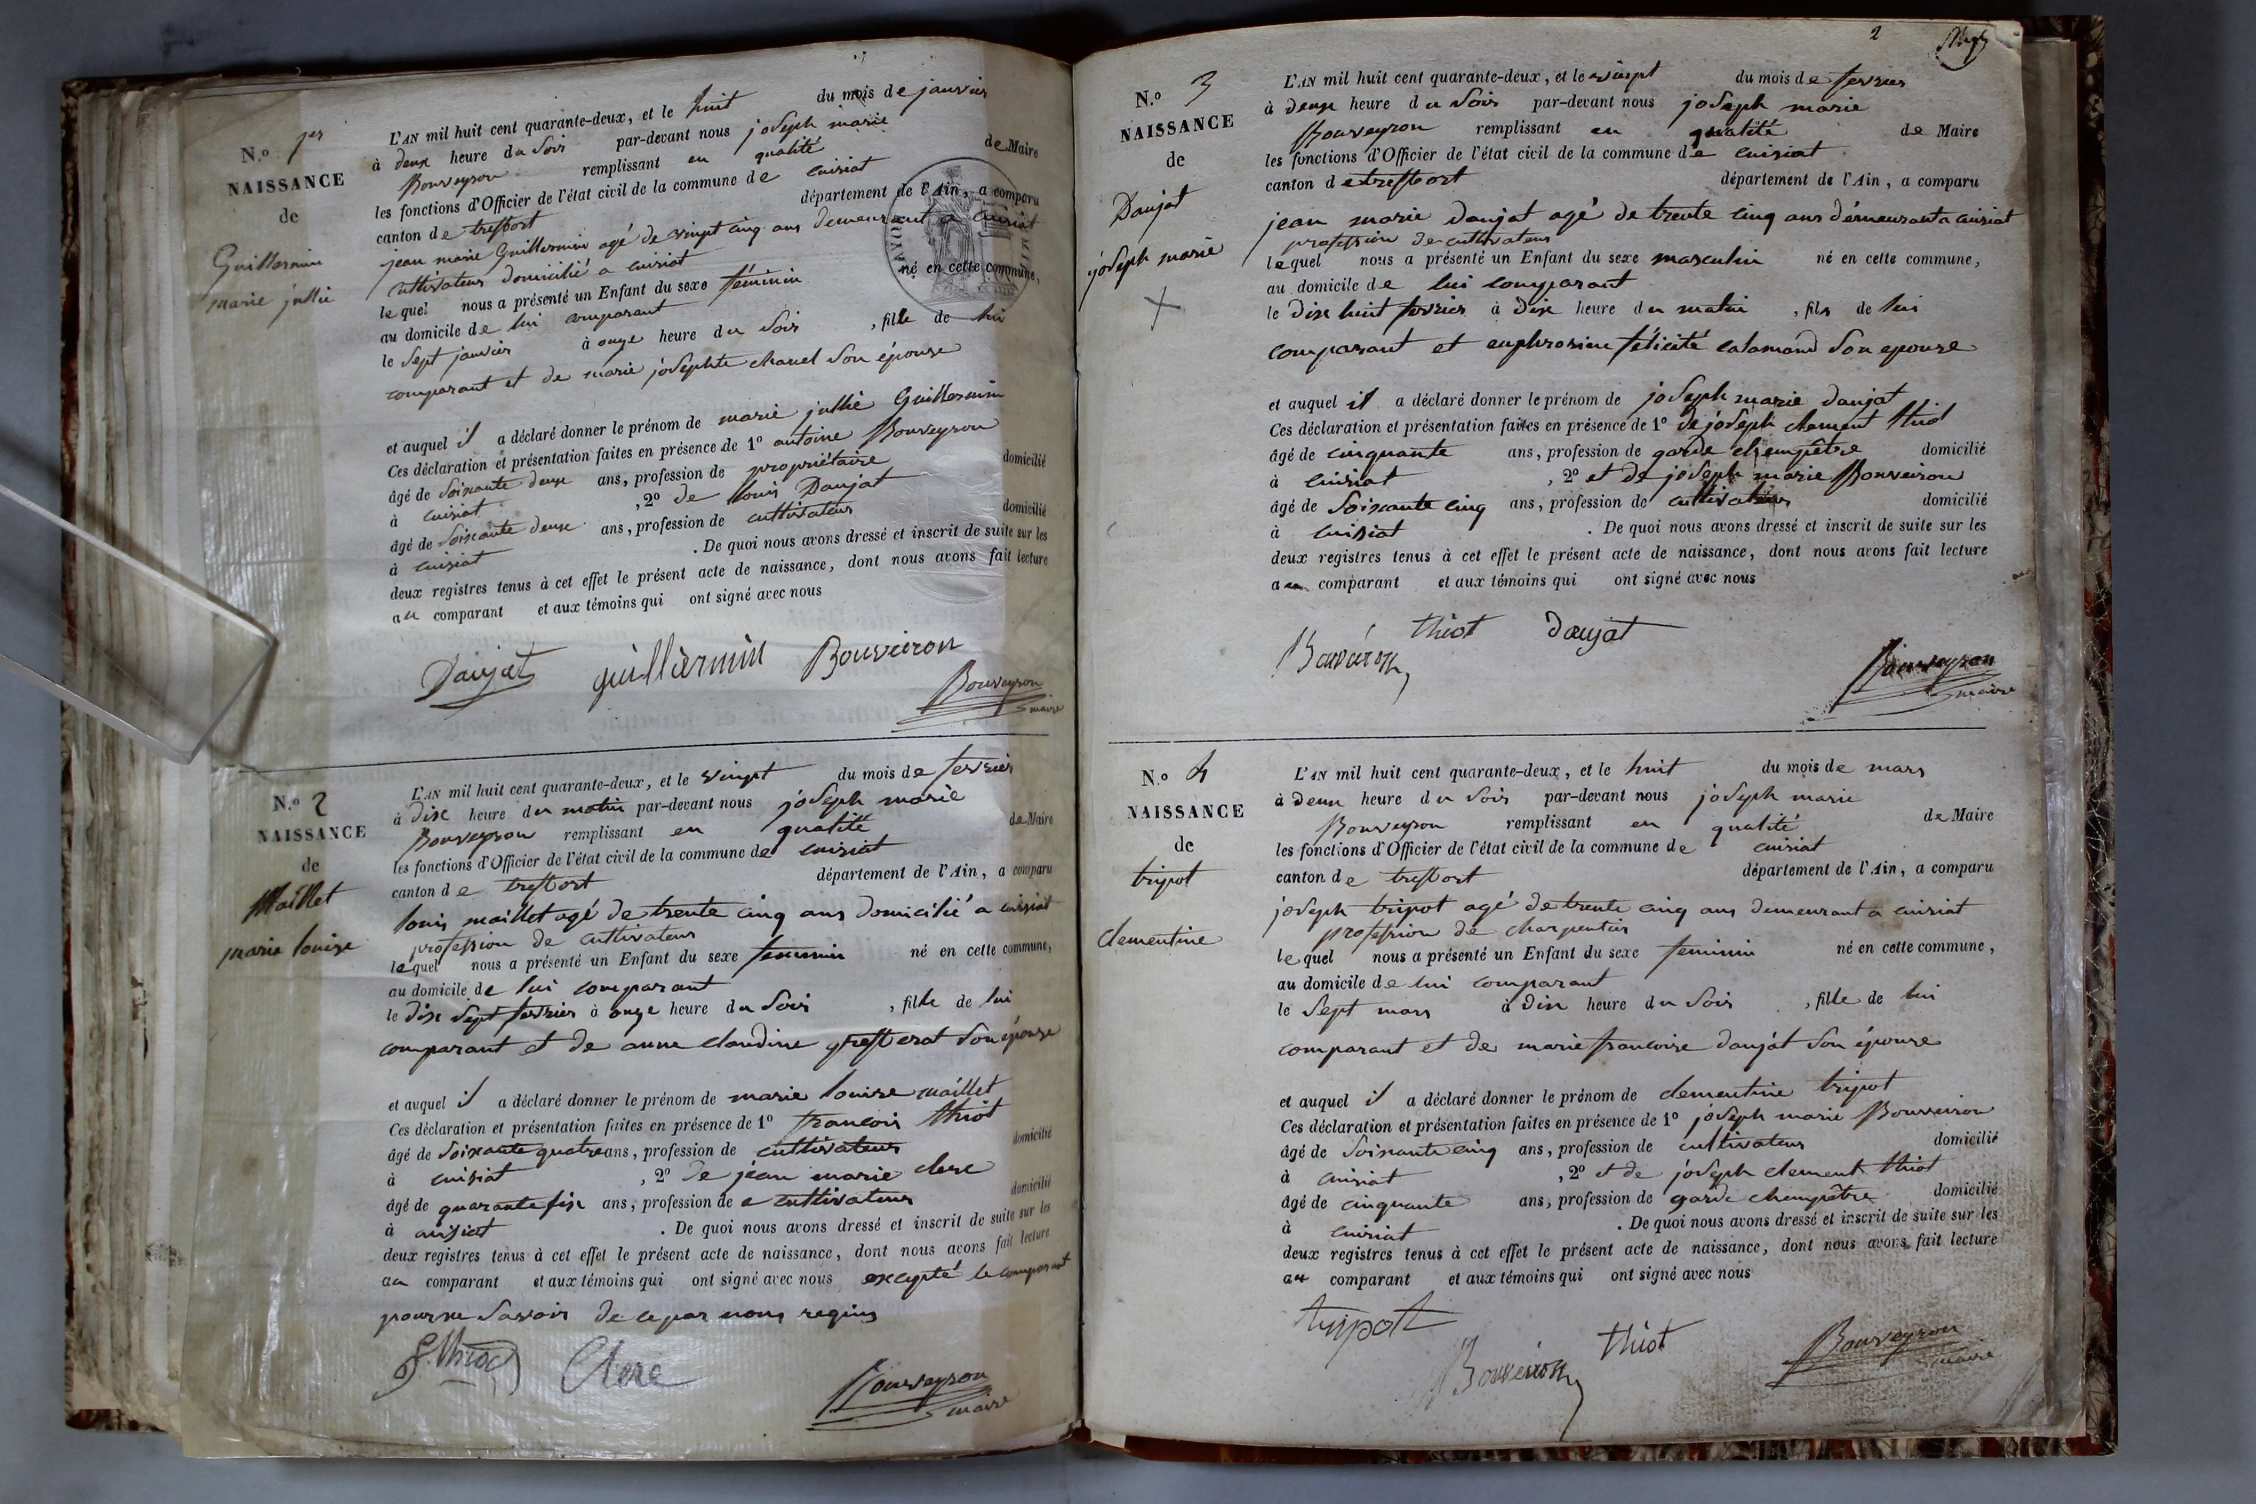 N.o 1er
NAISSANCE
de
Guillermin
marie jullie
L'AN mil huit cent quarante-deux, et le huit du mois de janvier
à deux heure du soir par-devant nous joseph marie
Bouveyron remplissant en qualité de Maire
les fonctions d'Officier de l'état civil de la commune de cuisiat
canton de treffort département de l'Ain, a comparu
jean marie Guillermin agé de vingt cinq ans demeurant a cuisiat
cultivateur domicilié a cuisiat
lequel nous a présenté un Enfant du sexe féminin né en cette commune,
au domicile de lui comparant
le sept janvier à onze heure du soir, fille de lui
comparant et de marie josephte chanel son épouse
et auquel il a déclaré donner le prénom de marie jullie Guillermin
Ces déclaration et présentation faites en présence de 1o antoine Bouveyron
âgé de soixante deux ans, profession de propriétaire domicilié
à cuisiat, 2o de louis Daujat
âgé de soixante deux ans, profession de cultivateur domicilié
à cuisiat. De quoi nous avons dressé et inscrit de suite sur les
deux registres tenus à cet effet le présent acte de naissance, dont nous avons fait lecture
au comparant et aux témoins qui ont signé avec nous
Daujat guillermin Bouveiron
Bouveyron
maire
N.o 2
NAISSANCE
de
Maillet
marie louise
L'AN mil huit cent quarante-deux, et le vingt du mois de fevrier
à dix heure du matin par-devant nous joseph marie
Bouveyron remplissant en qualité de Maire
les fonctions d'Officier de l'état civil de la commune de cuisiat
canton de treffort département de l'Ain, a comparu
louis maillet agé de trente cinq ans domicilié a cuisiat
profession de cultivateur
lequel nous a présenté un Enfant du sexe feminin né en cette commune,
au domicile de lui comparant
le dix sept fevrier à onze heure du soir, fille de lui
comparant et de anne claudine son épouse
et auquel il a déclaré donner le prénom de marie louise maillet
Ces déclaration et présentation faites en présence de 1o francois thiot
âgé de soixante quatre ans, profession de cultivateur domicilié
à cuisiat, 2o de jean marie clerc
âgé de quarante six ans, profession de cultivateur domicilié
à cuisiat. De quoi nous avons dressé et inscrit de suite sur les
deux registres tenus à cet effet le présent acte de naissance, dont nous avons fait lecture
au comparant et aux témoins qui ont signé avec nous excepté le comparant
pour ne savoir de ce par nous requis
f. thiot Clerc
Bouveyron
maire
2
N.o 3
NAISSANCE
de
Daujat
joseph marie
L'AN mil huit cent quarante-deux, et le vingt du mois de fevrier
à deux heure du soir par-devant nous joseph marie
Bouveyron remplissant en qualité de Maire
les fonctions d'Officier de l'état civil de la commune de cuisiat
canton de treffort département de l'Ain, a comparu
jean marie daujat agé de trente cinq ans démeurant a cuisiat
profession de cultivateur
lequel nous a présenté un Enfant du sexe masculin né en cette commune,
au domicile de lui comparant
le dix huit fevrier à dix heure du matin, fils de lui
comparant et euphrosine félicité calamand son epouse
et auquel il a déclaré donner le prénom de joseph marie daujat
Ces déclaration et présentation faites en présence de 1o de joseph clement thiot
âgé de cinquante ans, profession de garde champêtre domicilié
à cuisiat, 2o et de joseph marie Bouveiron
âgé de soixante cinq ans, profession de cultivateur domicilié
à cuisiat. De quoi nous avons dressé et inscrit de suite sur les
deux registres tenus à cet effet le présent acte de naissance, dont nous avons fait lecture
au comparant et aux témoins qui ont signé avec nous
Bouveiron thiot daujat
Bouveyron
maire
N.o 4
NAISSANCE
de
tripot
clementine
L'AN mil huit cent quarante-deux, et le huit du mois de mars
à deux heure du soir par-devant nous joseph marie
Bouveyron remplissant en qualité de Maire
les fonctions d'Officier de l'état civil de la commune de cuisiat
canton de treffort département de l'Ain, a comparu
joseph tripot agé de trente cinq ans demeurant a cuisiat
profession de charpentier
lequel nous a présenté un Enfant du sexe feminin né en cette commune,
au domicile de lui comparant
le sept mars à dix heure du soir, fille de lui
comparant et de marie francoise daujat son épouse
et auquel il a déclaré donner le prénom de clementine tripot
Ces déclaration et présentation faites en présence de 1o joseph marie Bouveiron
âgé de soixante cinq ans, profession de cultivateur domicilié
à cuisiat, 2o et de joseph clement thiot
âgé de cinquante ans, profession de garde champêtre domicilié
à cuisiat. De quoi nous avons dressé et inscrit de suite sur les
deux registres tenus à cet effet le présent acte de naissance, dont nous avons fait lecture
au comparant et aux témoins qui ont signé avec nous
tripot
Bouveiron thiot Bouveyron
maire